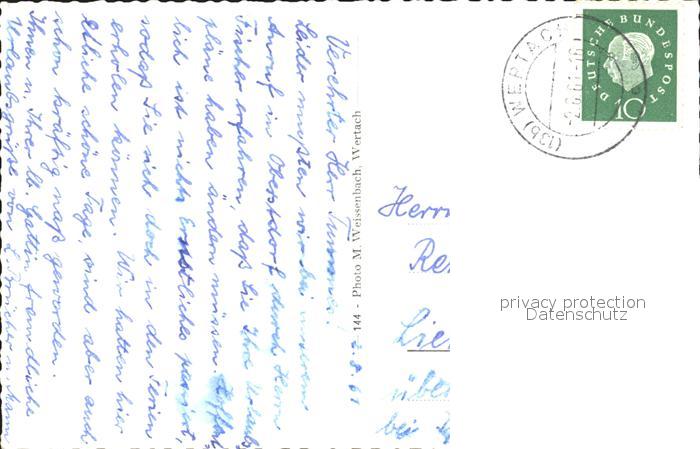 Verehrter Herr
Leider mussten wir bei unserem
Anruf in Oberstdorf durch Herrn
Fischer erfahren, daß Sie Ihre Urlaubs-
pläne haben ändern müssen. Hoffent-
lich ist nichts Ernstliches passiert,
sodaß Sie sich doch in den Ferien
erholen können. Wir hatten hier
etliche schöne Tage, sind aber auch
schon kräftig naß geworden.
Ihnen u. Ihrer lb. Gattin freundliche
Urlaubsgrüße von
2.8.61
144 - Photo M. Weissenbach, Wertach
(13b) WERTACH
DEUTSCHE BUNDESPOST
10
Herrn
Re
Lie
über
bei
privacy protection
Datenschutz